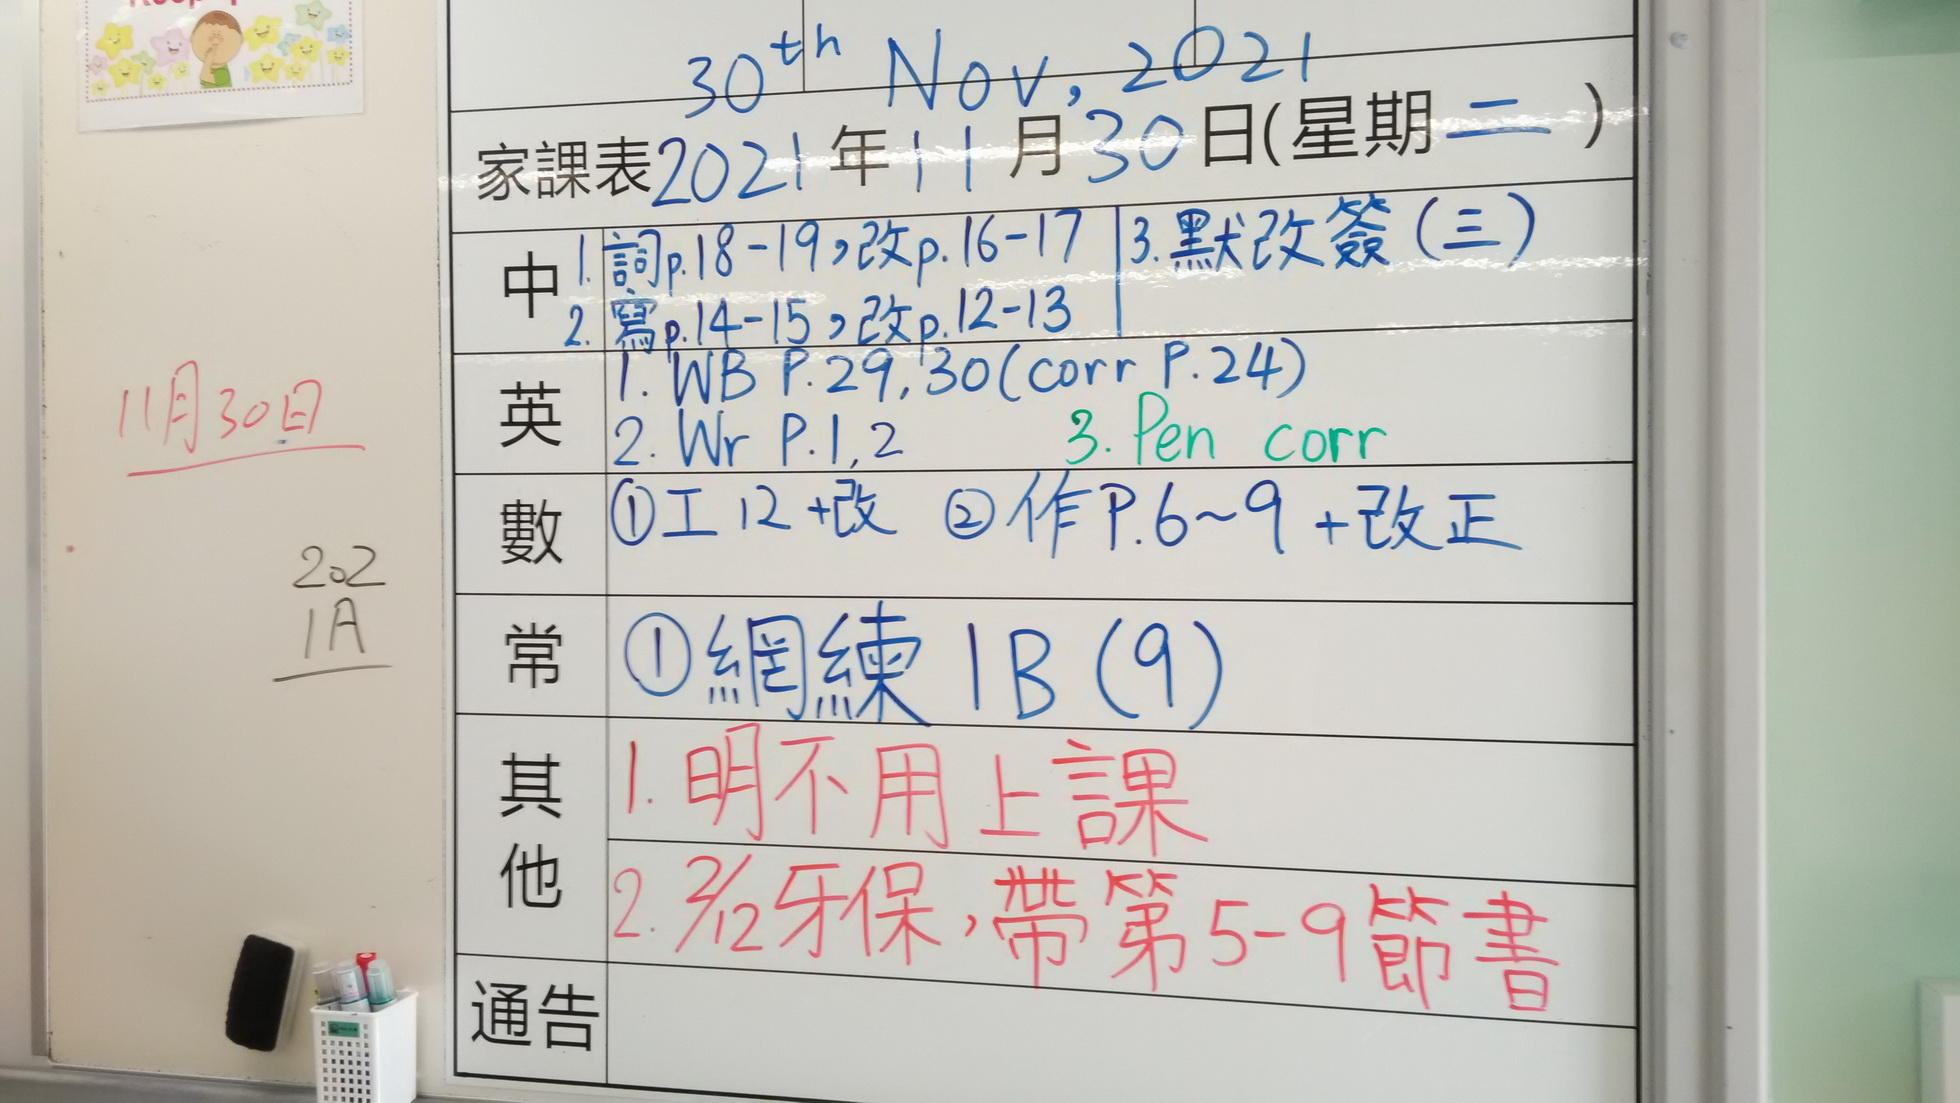 30th Nov, 2021
家課表2021年11月30日(星期二)
中
1. 詞p.18-19,改p.16-17
2. 寫p.14-15,改p.12-13
3. 默改簽(三)
英
1. WB P.29,30(corr P.24)
2. Wr P.1,2 3. Pen corr
數
①工12+改 ②作P.6~9+改正
常
①網練1B(9)
其他
1. 明不用上課
2. 2/12牙保,帶第5-9節書
通告
11月30日
202
1A